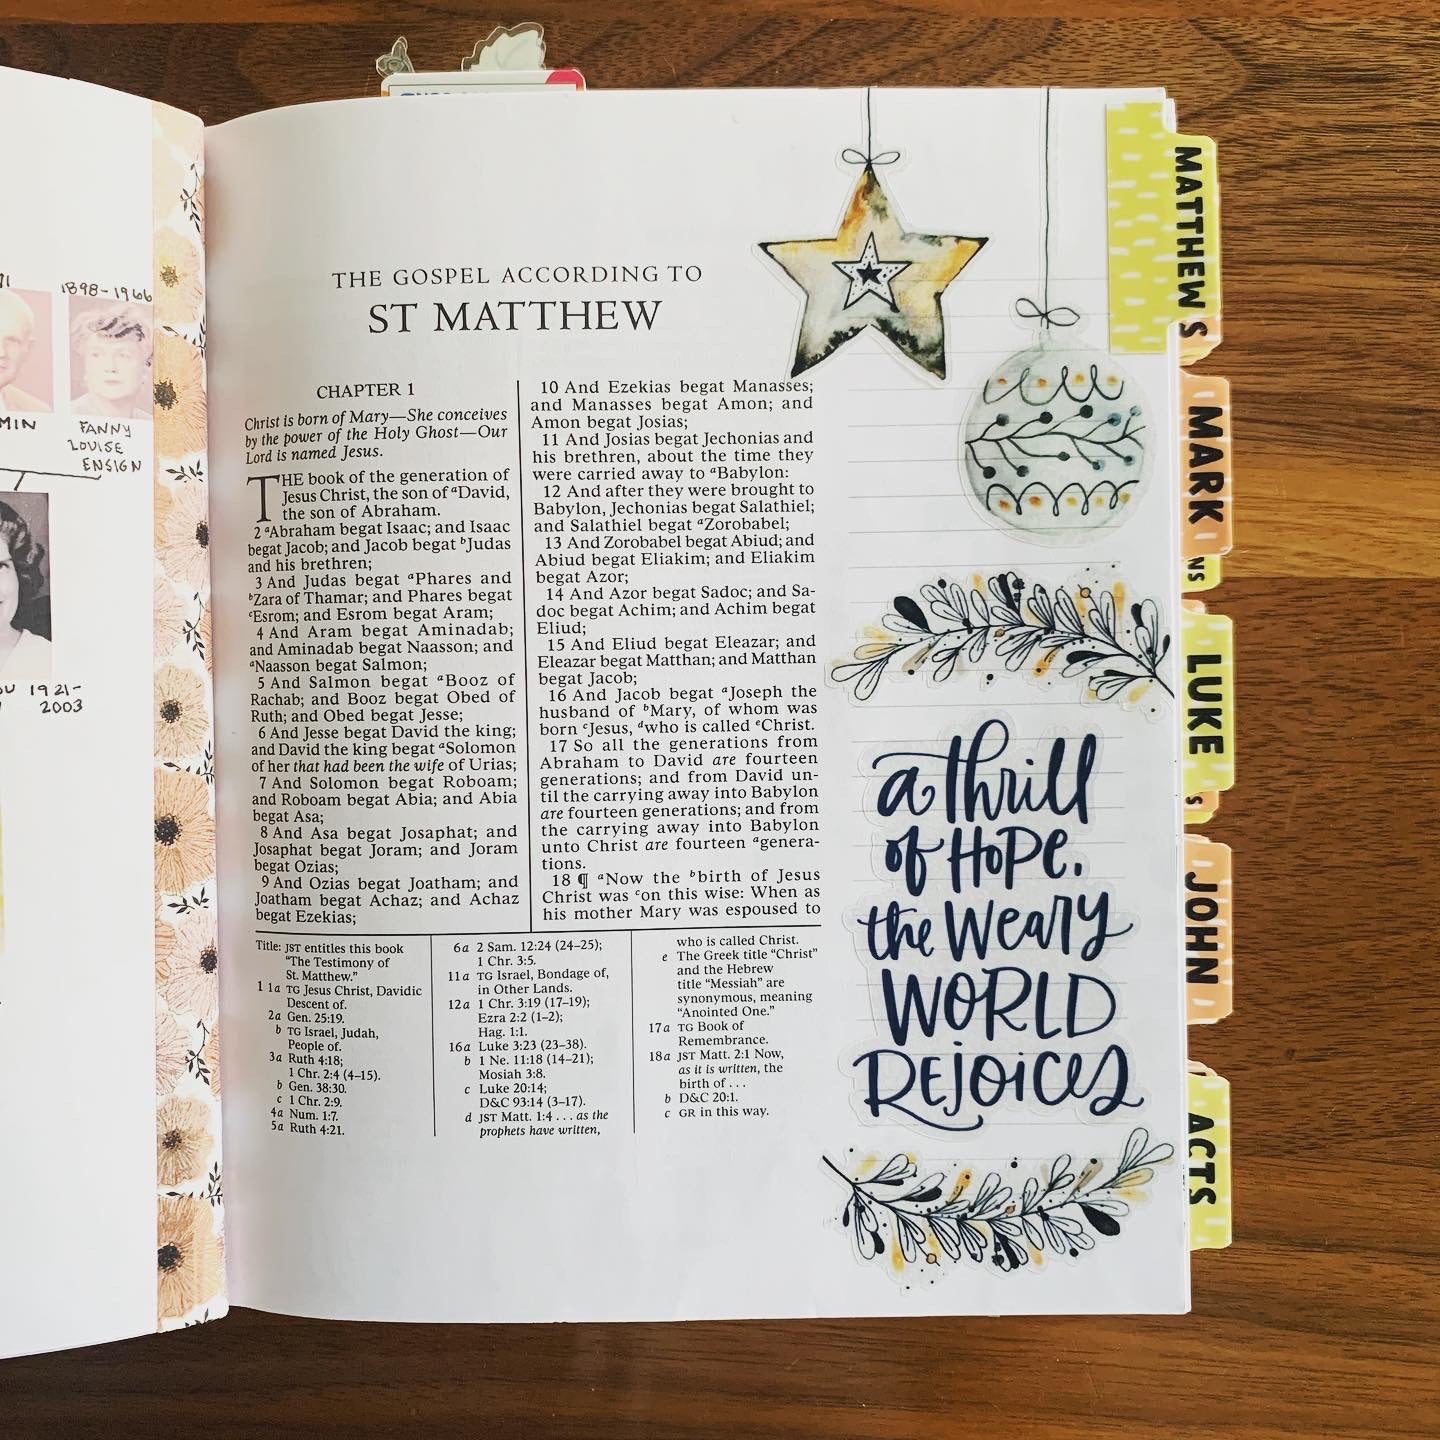 1898-1966
MIN
FANNY
LOUISE
ENSIGN
1921-
2003
THE GOSPEL ACCORDING TO
ST MATTHEW
CHAPTER 1
Christ is born of Mary—She conceives
by the power of the Holy Ghost—Our
Lord is named Jesus.
THE book of the generation of
Jesus Christ, the son of aDavid,
the son of Abraham.
2 aAbraham begat Isaac; and Isaac
begat Jacob; and Jacob begat bJudas
and his brethren;
3 And Judas begat aPhares and
bZara of Thamar; and Phares begat
cEsrom; and Esrom begat Aram;
4 And Aram begat Aminadab;
and Aminadab begat Naasson; and
aNaasson begat Salmon;
5 And Salmon begat aBooz of
Rachab; and Booz begat Obed of
Ruth; and Obed begat Jesse;
6 And Jesse begat David the king;
and David the king begat aSolomon
of her that had been the wife of Urias;
7 And Solomon begat Roboam;
and Roboam begat Abia; and Abia
begat Asa;
8 And Asa begat Josaphat; and
Josaphat begat Joram; and Joram
begat Ozias;
9 And Ozias begat Joatham; and
Joatham begat Achaz; and Achaz
begat Ezekias;
10 And Ezekias begat Manasses;
and Manasses begat Amon; and
Amon begat Josias;
11 And Josias begat Jechonias and
his brethren, about the time they
were carried away to aBabylon:
12 And after they were brought to
Babylon, Jechonias begat Salathiel;
and Salathiel begat aZorobabel;
13 And Zorobabel begat Abiud; and
Abiud begat Eliakim; and Eliakim
begat Azor;
14 And Azor begat Sadoc; and Sa-
doc begat Achim; and Achim begat
Eliud;
15 And Eliud begat Eleazar; and
Eleazar begat Matthan; and Matthan
begat Jacob;
16 And Jacob begat aJoseph the
husband of bMary, of whom was
born cJesus, dwho is called eChrist.
17 So all the generations from
Abraham to David are fourteen
generations; and from David un-
til the carrying away into Babylon
are fourteen generations; and from
the carrying away into Babylon
unto Christ are fourteen agenera-
tions.
18 ¶ aNow the bbirth of Jesus
Christ was con this wise: When as
his mother Mary was espoused to
Title: JST entitles this book
"The Testimony of
St. Matthew."
1 1a TG Jesus Christ, Davidic
Descent of.
2a Gen. 25:19.
b TG Israel, Judah,
People of.
3a Ruth 4:18;
1 Chr. 2:4 (4–15).
b Gen. 38:30.
c 1 Chr. 2:9.
4a Num. 1:7.
5a Ruth 4:21.
6a 2 Sam. 12:24 (24–25);
1 Chr. 3:5.
11a TG Israel, Bondage of,
in Other Lands.
12a 1 Chr. 3:19 (17–19);
Ezra 2:2 (1–2);
Hag. 1:1.
16a Luke 3:23 (23–38).
b 1 Ne. 11:18 (14–21);
Mosiah 3:8.
c Luke 20:14;
D&C 93:14 (3–17).
d JST Matt. 1:4 . . . as the
prophets have written,
who is called Christ.
e The Greek title "Christ"
and the Hebrew
title "Messiah" are
synonymous, meaning
"Anointed One."
17a TG Book of
Remembrance.
18a JST Matt. 2:1 Now,
as it is written, the
birth of . . .
b D&C 20:1.
c GR in this way.
a thrill
of HoPe,
the Weary
WORLD
REjoices
MATTHEW
S
MARK
NS
LUKE
S
JOHN
ACTS